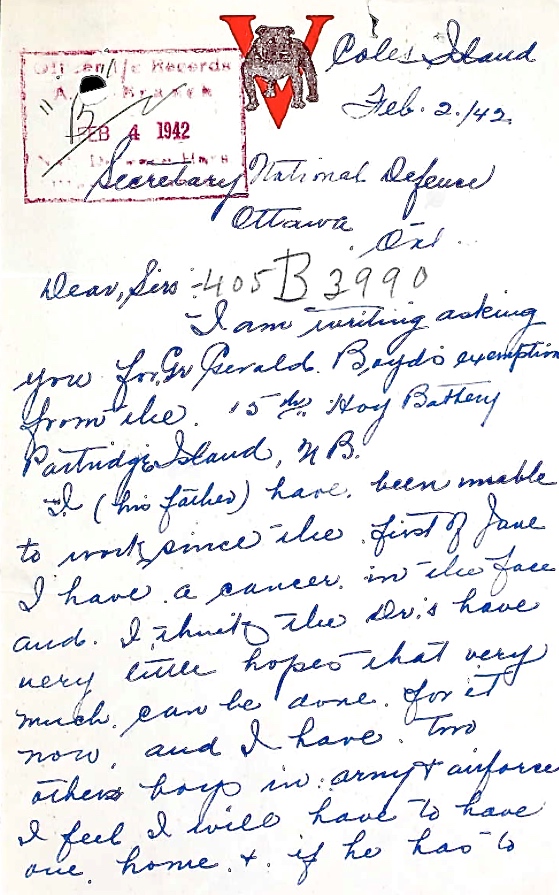 V
Coles Island
Feb. 2./42
Records
15
FEB 4 1942
Secretary National Defence
Ottawa
Ont.
Dear, Sirs:-
405 B 3990
I am writing asking
you for, Gr Gerald. Boyd's exemption
from the. 15th Hvy Battery
Partridge Island, N B.
I (his father) have. been unable
to work since the. first of June
I have. a cancer. in the face
and. I think the Dr.s have
very little hopes that very
much. can be done. for it
now, and I have. two
others boys in. army & airforce
I feel I will have to have
one. home. &. if he has to